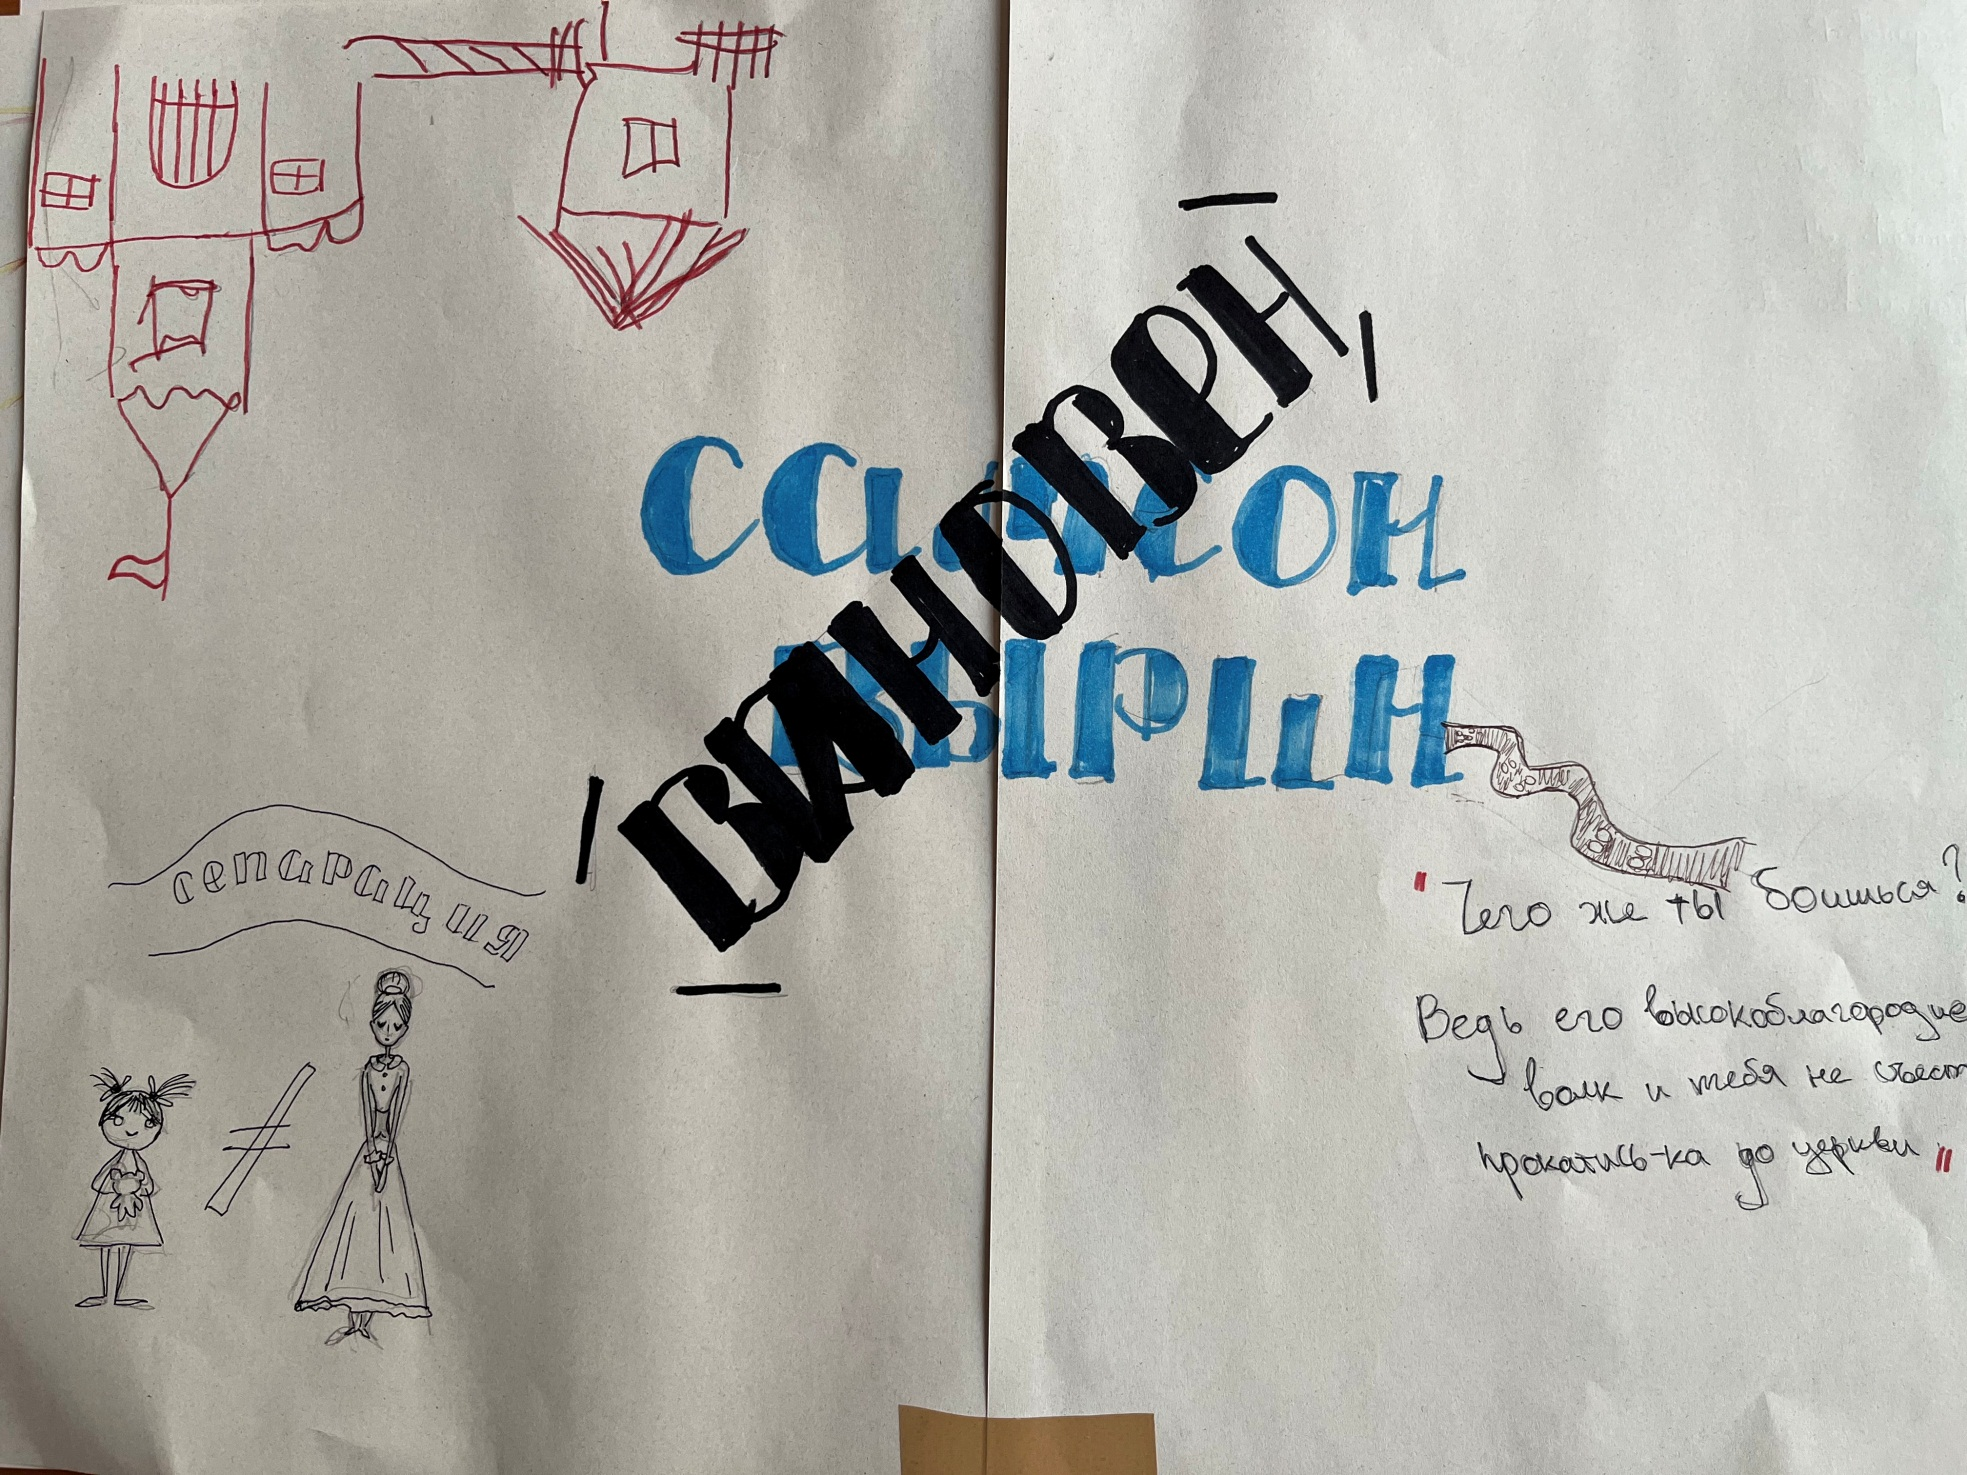 Самсон
Вырин
Виновен
сепарация
"Чего же ты боишься?
Ведь его высокоблагородие
волк и тебя не съест
прокатись-ка до церкви"